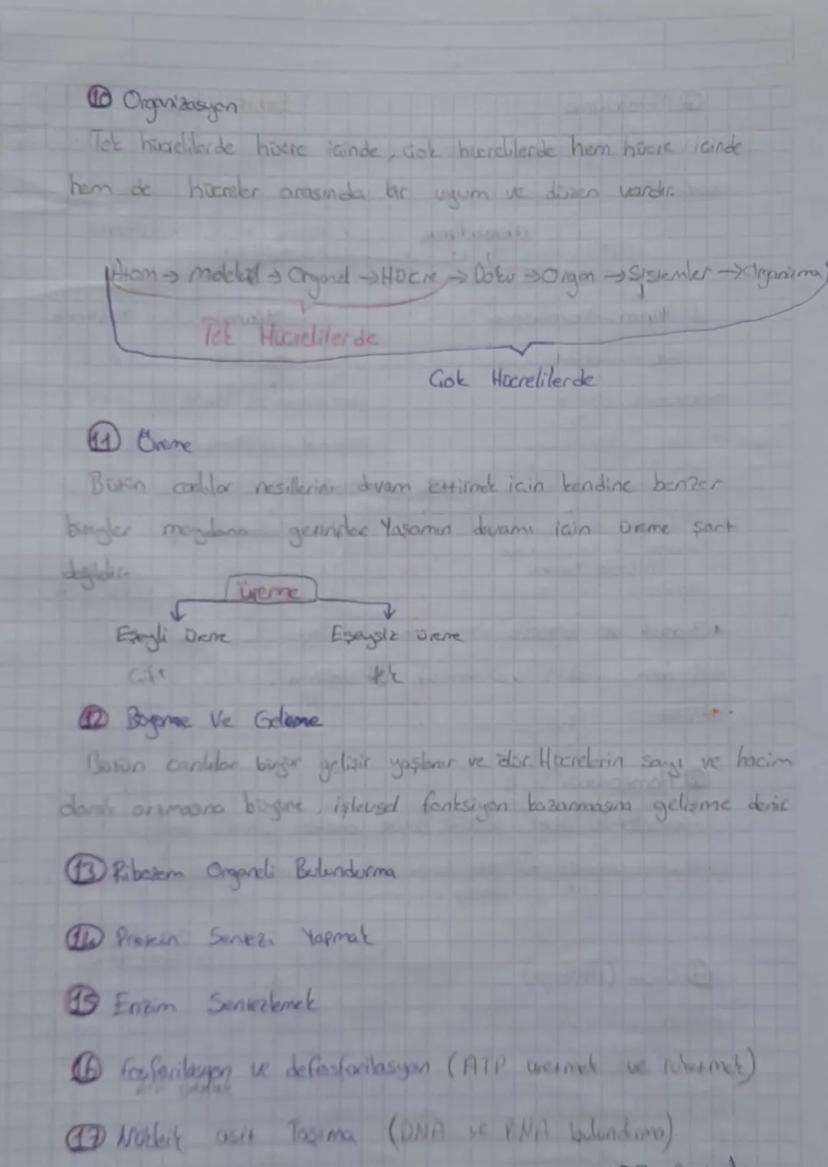 10 Organizasyon
Tek hücrelilerde hücre içinde, çok hücrelilerde hem hücre içinde
hem de hücreler arasında bir uyum ve düzen vardır.
Atom → molekül → Organel → Hücre → Doku → Organ → Sistemler → Organizma
Tek Hücrelilerde
Çok Hücrelilerde
11 Üreme
Bütün canlılar nesillerini devam ettirmek için kendine benzer
bireyler meydana getirirler Yaşamın devamı için üreme şart
değildir.
üreme
Eşeyli üreme Eşeysiz üreme
çift tek
12 Büyüme Ve Gelişme
Bütün canlılar büyür gelişir yaşlanır ve ölür. Hücrelerin sayı ve hacim
artmasına büyüme, işlevsel fonksiyon kazanmasına gelişme denir
13 Ribozom Organeli Bulundurma
14 Protein Sentezi Yapmak
15 Enzim Sentezlemek
16 Fosforilasyon ve defosforilasyon (ATP üretmek ve tüketmek)
17 Nükleik asit Taşıma (DNA ve RNA bulundurma)